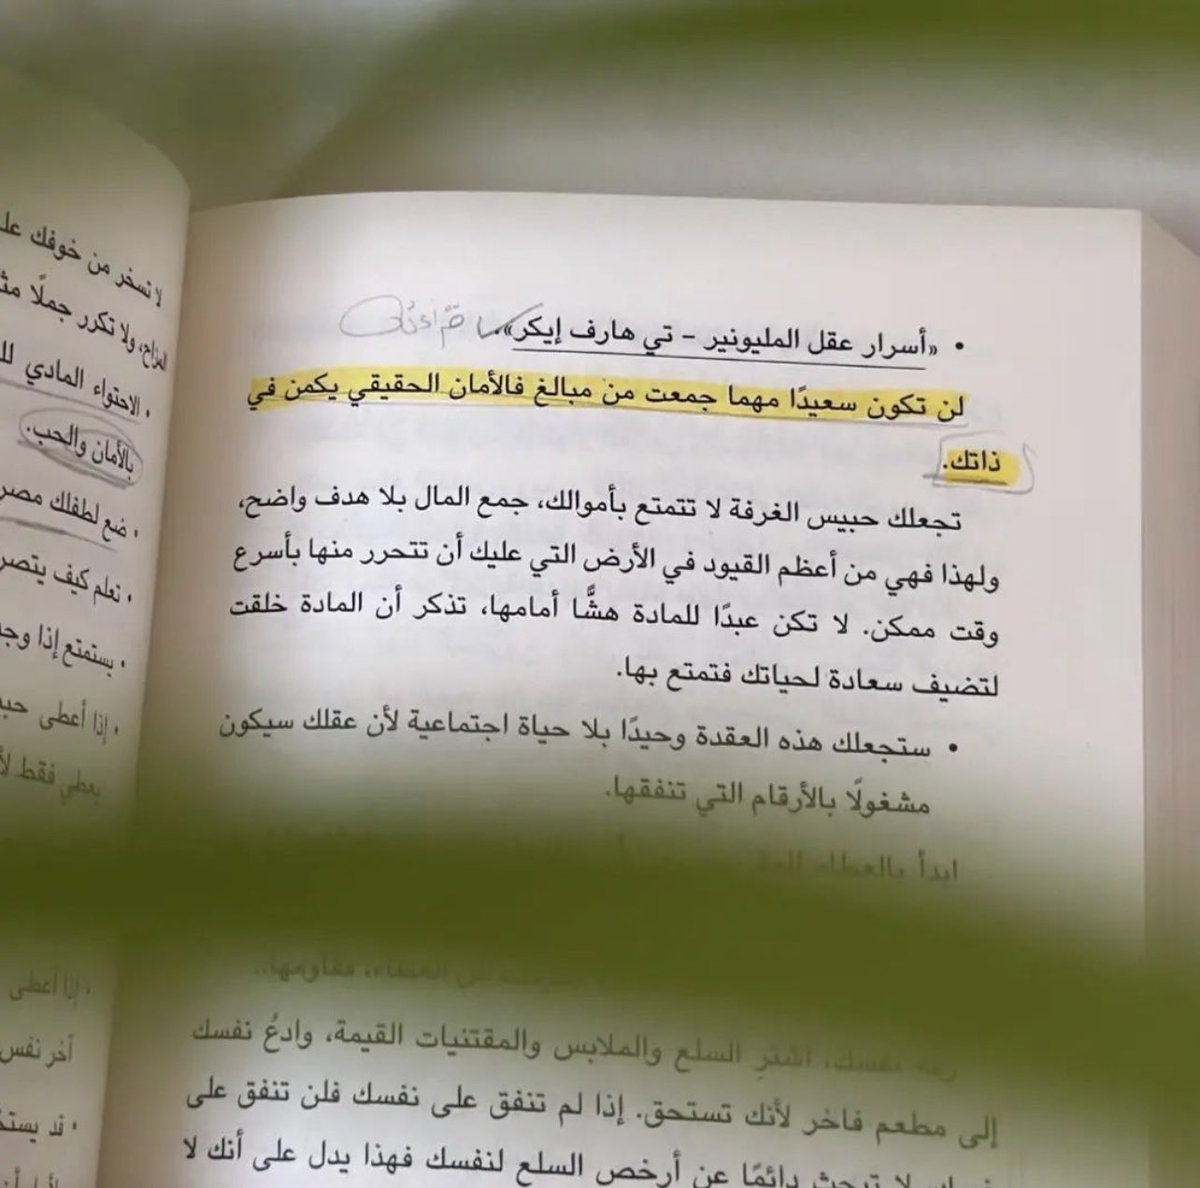 • «أسرار عقل المليونير – تي هارف إيكر».
لن تكون سعيدًا مهما جمعت من مبالغ فالأمان الحقيقي يكمن في
ذاتك.
تجعلك حبيس الغرفة لا تتمتع بأموالك، جمع المال بلا هدف واضح،
ولهذا فهي من أعظم القيود في الأرض التي عليك أن تتحرر منها بأسرع
وقت ممكن. لا تكن عبدًا للمادة هشًّا أمامها، تذكر أن المادة خلقت
لتضيف سعادة لحياتك فتمتع بها.
• ستجعلك هذه العقدة وحيدًا بلا حياة اجتماعية لأن عقلك سيكون
مشغولًا بالأرقام التي تنفقها.
ابدأ بالعطاء
العطاء، فقاومها..
نفسك، اشترِ السلع والملابس والمقتنيات القيمة، وادعُ نفسك
إلى مطعم فاخر لأنك تستحق. إذا لم تنفق على نفسك فلن تنفق على
لا تبحث دائمًا عن أرخص السلع لنفسك فهذا يدل على أنك لا
لا تسخر من خوفك
المزاح، ولا تكرر جملًا
• الاحتواء المادي
بالأمان والحب.
• ضع لطفلك
• تعلم كيف
• يستمتع إذا
• إذا أعطى
يعطي فقط
• إذا أعطى
آخر نفس
• قد